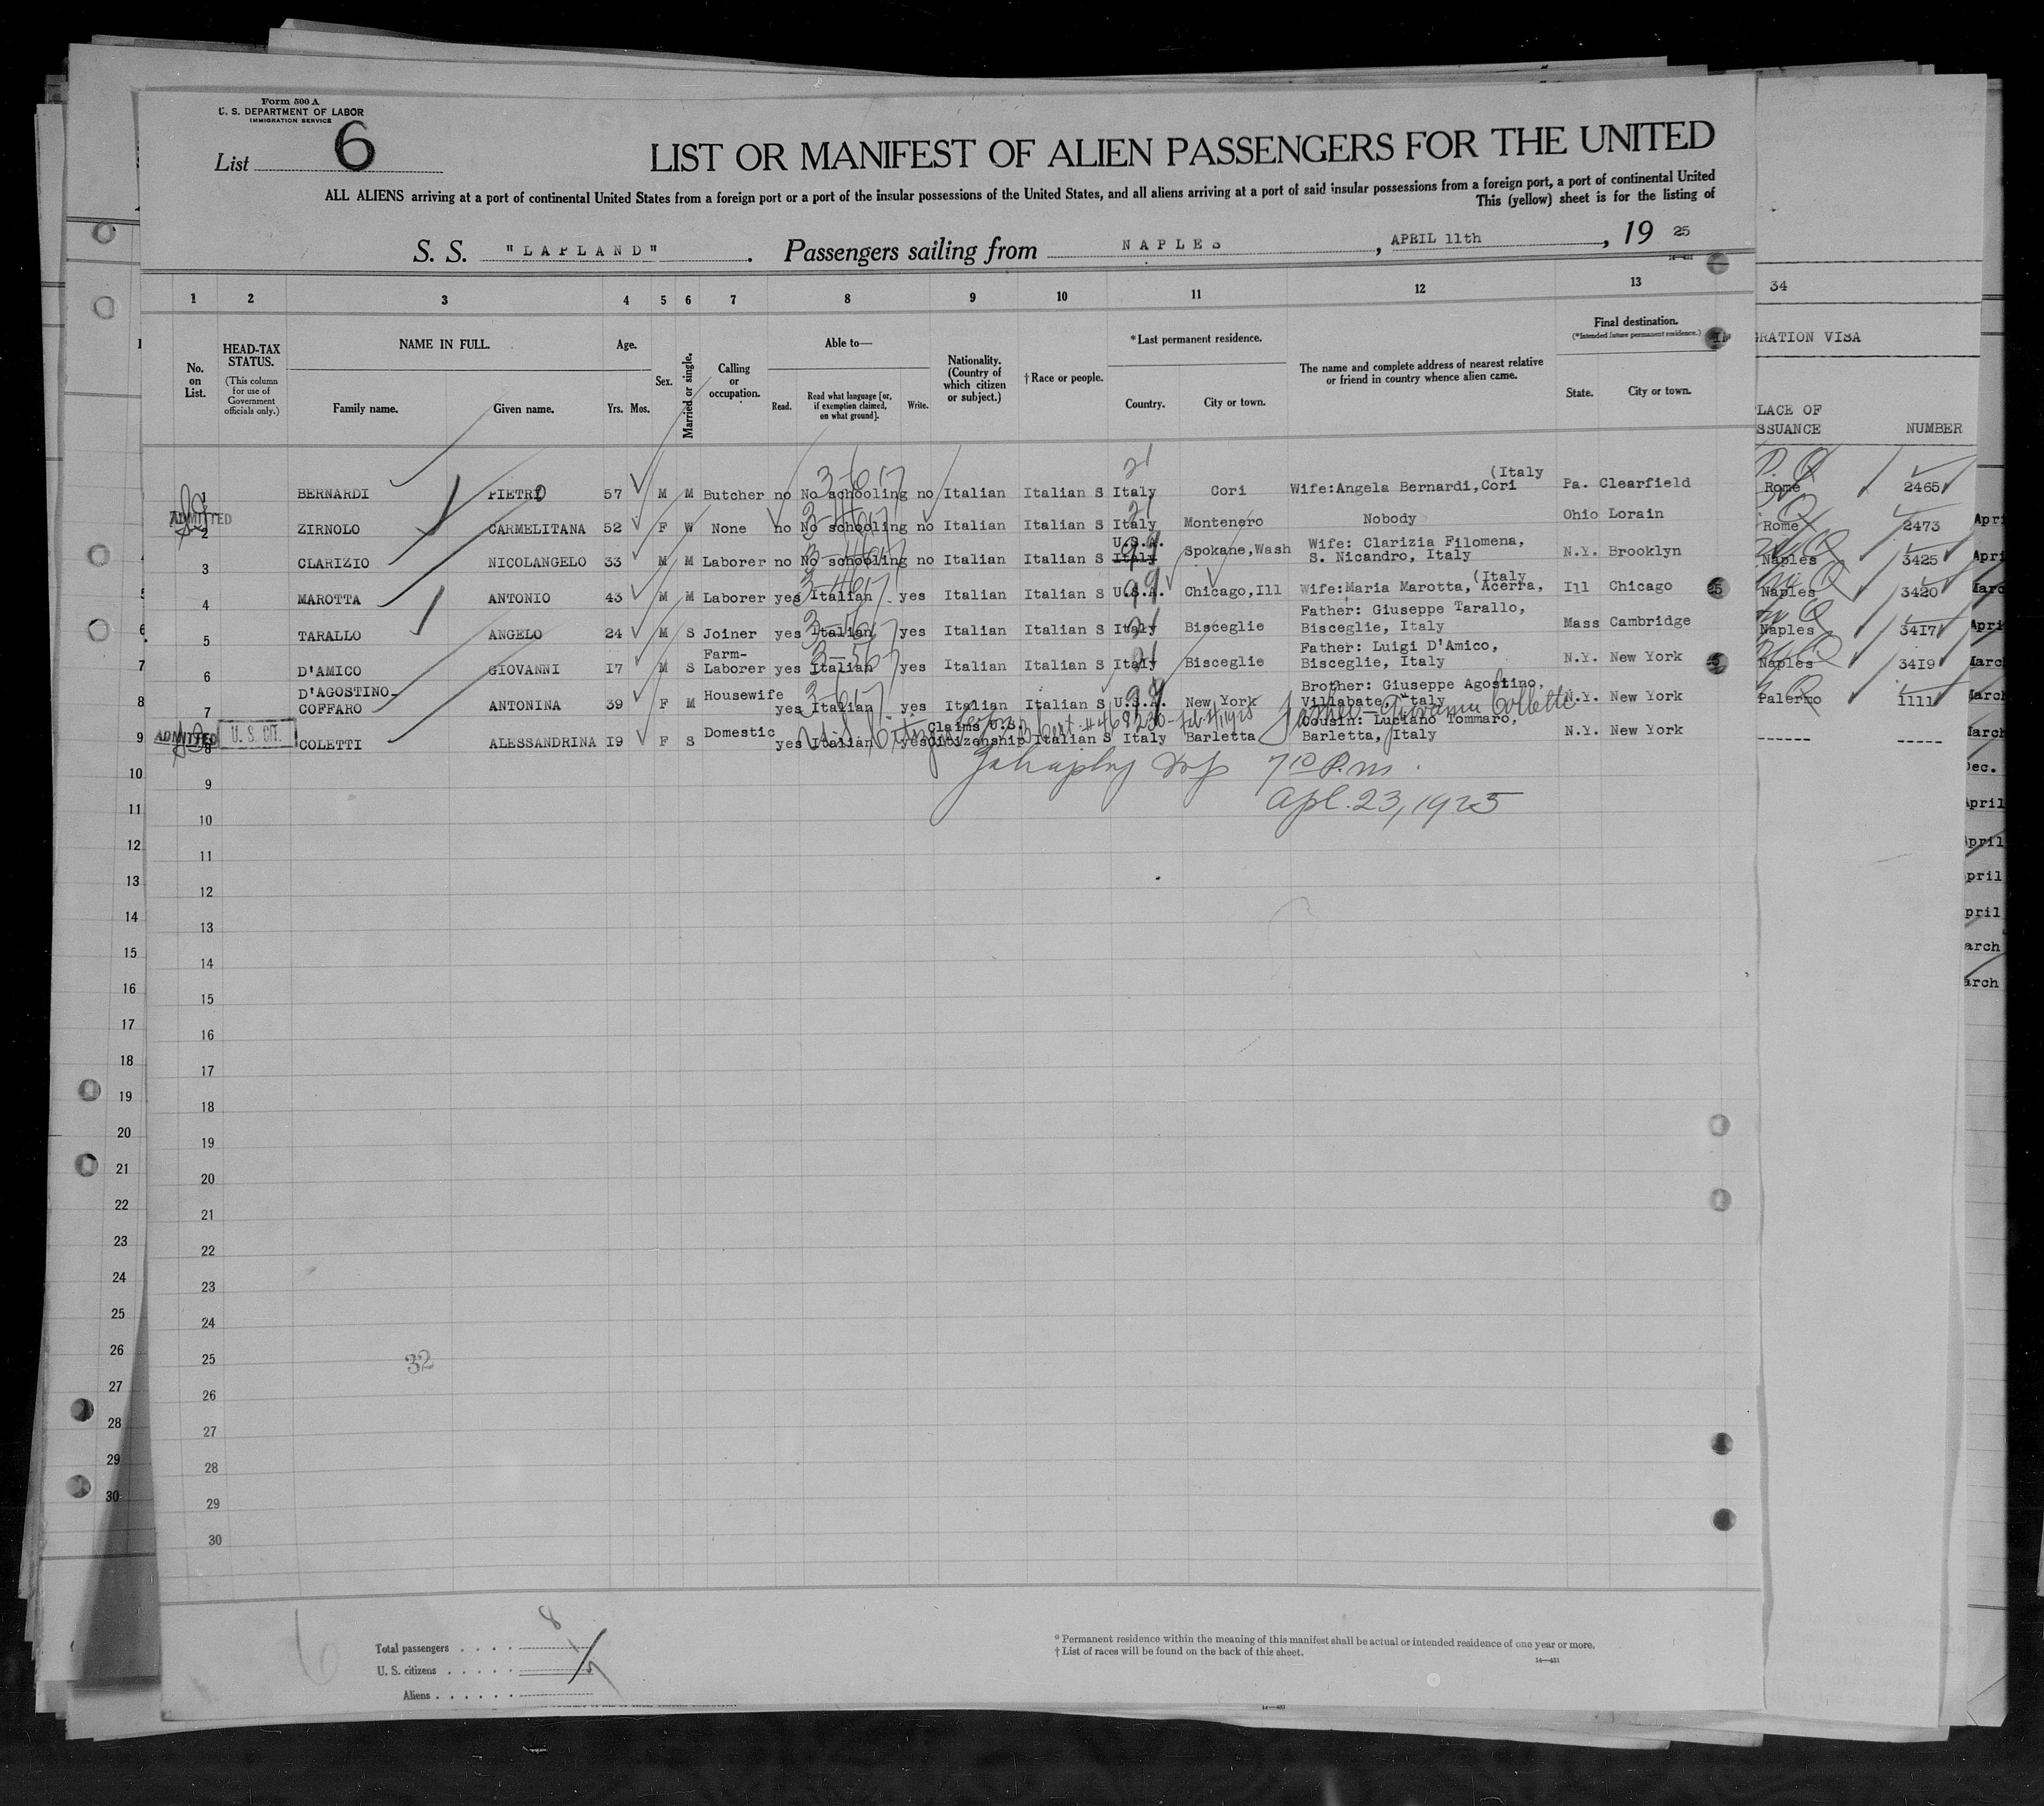 Form 500 A
U. S. DEPARTMENT OF LABOR
IMMIGRATION SERVICE
List 6
LIST OR MANIFEST OF ALIEN PASSENGERS FOR THE UNITED
ALL ALIENS arriving at a port of continental United States from a foreign port or a port of the insular possessions of the United States, and all aliens arriving at a port of said insular possessions from a foreign port, a port of continental United
This (yellow) sheet is for the listing of
S. S. "LAPLAND". Passengers sailing from NAPLES, APRIL 11th, 19 25
1 2 3 4 5 6 7 8 9 10 11 12 13 34
No. on List.
HEAD-TAX STATUS.
(This column for use of Government officials only.)
NAME IN FULL.
Family name. Given name.
Age.
Yrs. Mos.
Sex.
Married or single.
Calling or occupation.
Able to—
Read. Read what language [or, if exemption claimed, on what ground]. Write.
Nationality. (Country of which citizen or subject.)
†Race or people.
*Last permanent residence.
Country. City or town.
The name and complete address of nearest relative or friend in country whence alien came.
Final destination.
(*Intended future permanent residence.)
State. City or town.
GRATION VISA
LACE OF
SSUANCE NUMBER
1 BERNARDI PIETRO 57 M M Butcher no No schooling no Italian Italian S Italy Cori Wife:Angela Bernardi,Cori (Italy Pa. Clearfield Rome 2465
ADMITTED
2 ZIRNOLO CARMELITANA 52 F W None no No schooling no Italian Italian S Italy Montenero Nobody Ohio Lorain Rome 2473
3 CLARIZIO NICOLANGELO 33 M M Laborer no No schooling no Italian Italian S Italy U.S.A. Spokane,Wash Wife: Clarizia Filomena, S. Nicandro, Italy N.Y. Brooklyn Naples 3425
4 MAROTTA ANTONIO 43 M M Laborer yes Italian yes Italian Italian S U.S.A. Chicago,Ill Wife:Maria Marotta, Acerra, (Italy Ill Chicago Naples 3420
5 TARALLO ANGELO 24 M S Joiner yes Italian yes Italian Italian S Italy Bisceglie Father: Giuseppe Tarallo, Bisceglie, Italy Mass Cambridge Naples 3417
6 D'AMICO GIOVANNI 17 M S Farm-Laborer yes Italian yes Italian Italian S Italy Bisceglie Father: Luigi D'Amico, Bisceglie, Italy N.Y. New York Naples 3419
7 D'AGOSTINO-COFFARO ANTONINA 39 F M Housewife yes Italian yes Italian Italian S U.S.A. New York Brother: Giuseppe Agostino, Villabate, Italy N.Y. New York Palermo 1111
ADMITTED U. S. CIT.
8 COLETTI ALESSANDRINA 19 F S Domestic yes Italian yes Claims U.S. Citizenship Italian S Italy Barletta Cousin: Luciano Tommaro, Barletta, Italy N.Y. New York ------ -----
7 10 P.m.
Apl. 23, 1925
9
10
11
12
13
14
15
16
17
18
19
20
21
22
23
24
25
26
27
28
29
30
32
Total passengers . . . . 8
U. S. citizens . . . . .
Aliens . . . . . .
* Permanent residence within the meaning of this manifest shall be actual or intended residence of one year or more.
† List of races will be found on the back of this sheet.
14—431